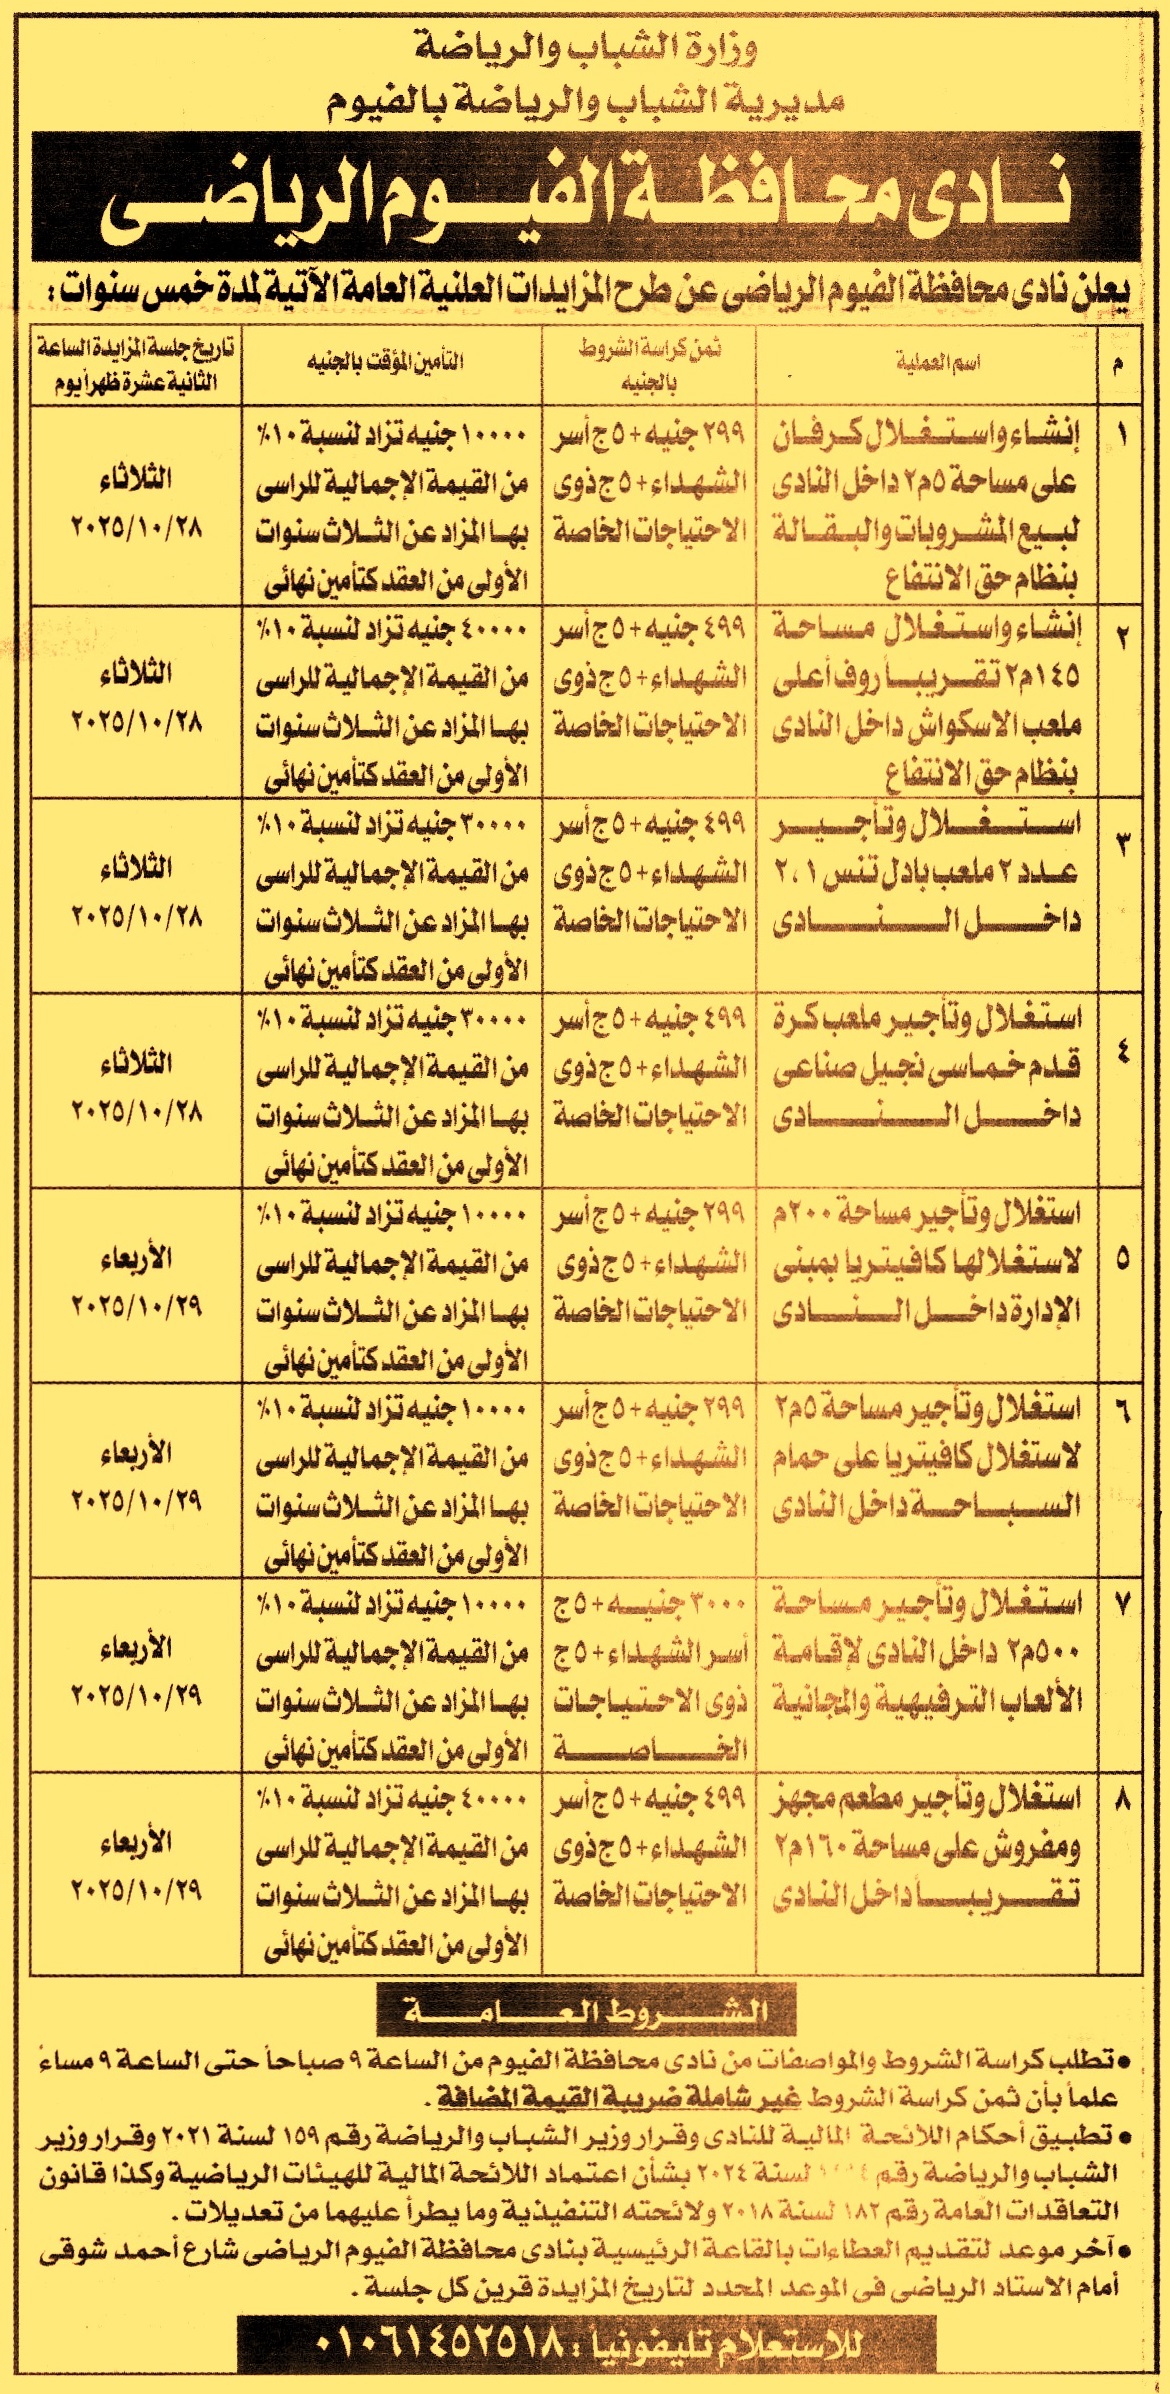 وزارة الشباب والرياضة
مديرية الشباب والرياضة بالفيوم
نادى محافظة الفيوم الرياضى
يعلن نادى محافظة الفيوم الرياضى عن طرح المزايدات العلنية العامة الآتية لمدة خمس سنوات :
م
اسم العملية
ثمن كراسة الشروط
بالجنيه
التأمين المؤقت بالجنيه
تاريخ جلسة المزايدة الساعة
الثانية عشرة ظهراً يوم
١
إنشاء واستغلال كرفان
على مساحة ٥م٢ داخل النادى
لبيع المشروبات والبقالة
بنظام حق الانتفاع
٢٩٩ جنيه + ٥ ج أسر
الشهداء + ٥ ج ذوى
الاحتياجات الخاصة
١٠٠٠٠ جنيه تزاد لنسبة ١٠٪
من القيمة الإجمالية للراسى
بها المزاد عن الثلاث سنوات
الأولى من العقد كتأمين نهائى
الثلاثاء
٢٠٢٥/١٠/٢٨
٢
إنشاء واستغلال مساحة
١٤٥م٢ تقريباً روف أعلى
ملعب الاسكواش داخل النادى
بنظام حق الانتفاع
٤٩٩ جنيه + ٥ ج أسر
الشهداء + ٥ ج ذوى
الاحتياجات الخاصة
٤٠٠٠٠ جنيه تزاد لنسبة ١٠٪
من القيمة الإجمالية للراسى
بها المزاد عن الثلاث سنوات
الأولى من العقد كتأمين نهائى
الثلاثاء
٢٠٢٥/١٠/٢٨
٣
استغلال وتأجير
عدد ٢ ملعب بادل تنس ١، ٢
داخل النادى
٤٩٩ جنيه + ٥ ج أسر
الشهداء + ٥ ج ذوى
الاحتياجات الخاصة
٣٠٠٠٠ جنيه تزاد لنسبة ١٠٪
من القيمة الإجمالية للراسى
بها المزاد عن الثلاث سنوات
الأولى من العقد كتأمين نهائى
الثلاثاء
٢٠٢٥/١٠/٢٨
٤
استغلال وتأجير ملعب كرة
قدم خماسى نجيل صناعى
داخل النادى
٤٩٩ جنيه + ٥ ج أسر
الشهداء + ٥ ج ذوى
الاحتياجات الخاصة
٣٠٠٠٠ جنيه تزاد لنسبة ١٠٪
من القيمة الإجمالية للراسى
بها المزاد عن الثلاث سنوات
الأولى من العقد كتأمين نهائى
الثلاثاء
٢٠٢٥/١٠/٢٨
٥
استغلال وتأجير مساحة ٢٠٠م
لاستغلالها كافيتريا بمبنى
الإدارة داخل النادى
٢٩٩ جنيه + ٥ ج أسر
الشهداء + ٥ ج ذوى
الاحتياجات الخاصة
١٠٠٠٠ جنيه تزاد لنسبة ١٠٪
من القيمة الإجمالية للراسى
بها المزاد عن الثلاث سنوات
الأولى من العقد كتأمين نهائى
الأربعاء
٢٠٢٥/١٠/٢٩
٦
استغلال وتأجير مساحة ٥م٢
لاستغلال كافيتريا على حمام
السباحة داخل النادى
٢٩٩ جنيه + ٥ ج أسر
الشهداء + ٥ ج ذوى
الاحتياجات الخاصة
١٠٠٠٠ جنيه تزاد لنسبة ١٠٪
من القيمة الإجمالية للراسى
بها المزاد عن الثلاث سنوات
الأولى من العقد كتأمين نهائى
الأربعاء
٢٠٢٥/١٠/٢٩
٧
استغلال وتأجير مساحة
٥٠٠م٢ داخل النادى لإقامة
الألعاب الترفيهية والمجانية
٣٠٠٠ جنيه + ٥ ج
أسر الشهداء + ٥ ج
ذوى الاحتياجات
الخاصة
١٠٠٠٠ جنيه تزاد لنسبة ١٠٪
من القيمة الإجمالية للراسى
بها المزاد عن الثلاث سنوات
الأولى من العقد كتأمين نهائى
الأربعاء
٢٠٢٥/١٠/٢٩
٨
استغلال وتأجير مطعم مجهز
ومفروش على مساحة ١٦٠م٢
تقريباً داخل النادى
٤٩٩ جنيه + ٥ ج أسر
الشهداء + ٥ ج ذوى
الاحتياجات الخاصة
٤٠٠٠٠ جنيه تزاد لنسبة ١٠٪
من القيمة الإجمالية للراسى
بها المزاد عن الثلاث سنوات
الأولى من العقد كتأمين نهائى
الأربعاء
٢٠٢٥/١٠/٢٩
الشروط العامة
• تطلب كراسة الشروط والمواصفات من نادى محافظة الفيوم من الساعة ٩ صباحاً حتى الساعة ٩ مساءً
علماً بأن ثمن كراسة الشروط غير شاملة ضريبة القيمة المضافة .
• تطبيق أحكام اللائحة المالية للنادى وقرار وزير الشباب والرياضة رقم ١٥٩ لسنة ٢٠٢١ وقرار وزير
الشباب والرياضة رقم لسنة ٢٠٢٤ بشأن اعتماد اللائحة المالية للهيئات الرياضية وكذا قانون
التعاقدات العامة رقم ١٨٢ لسنة ٢٠١٨ ولائحته التنفيذية وما يطرأ عليهما من تعديلات .
• آخر موعد لتقديم العطاءات بالقاعة الرئيسية بنادى محافظة الفيوم الرياضى شارع أحمد شوقى
أمام الاستاد الرياضى فى الموعد المحدد لتاريخ المزايدة قرين كل جلسة .
للاستعلام تليفونياً : ٠١٠٦١٤٥٢٥١٨